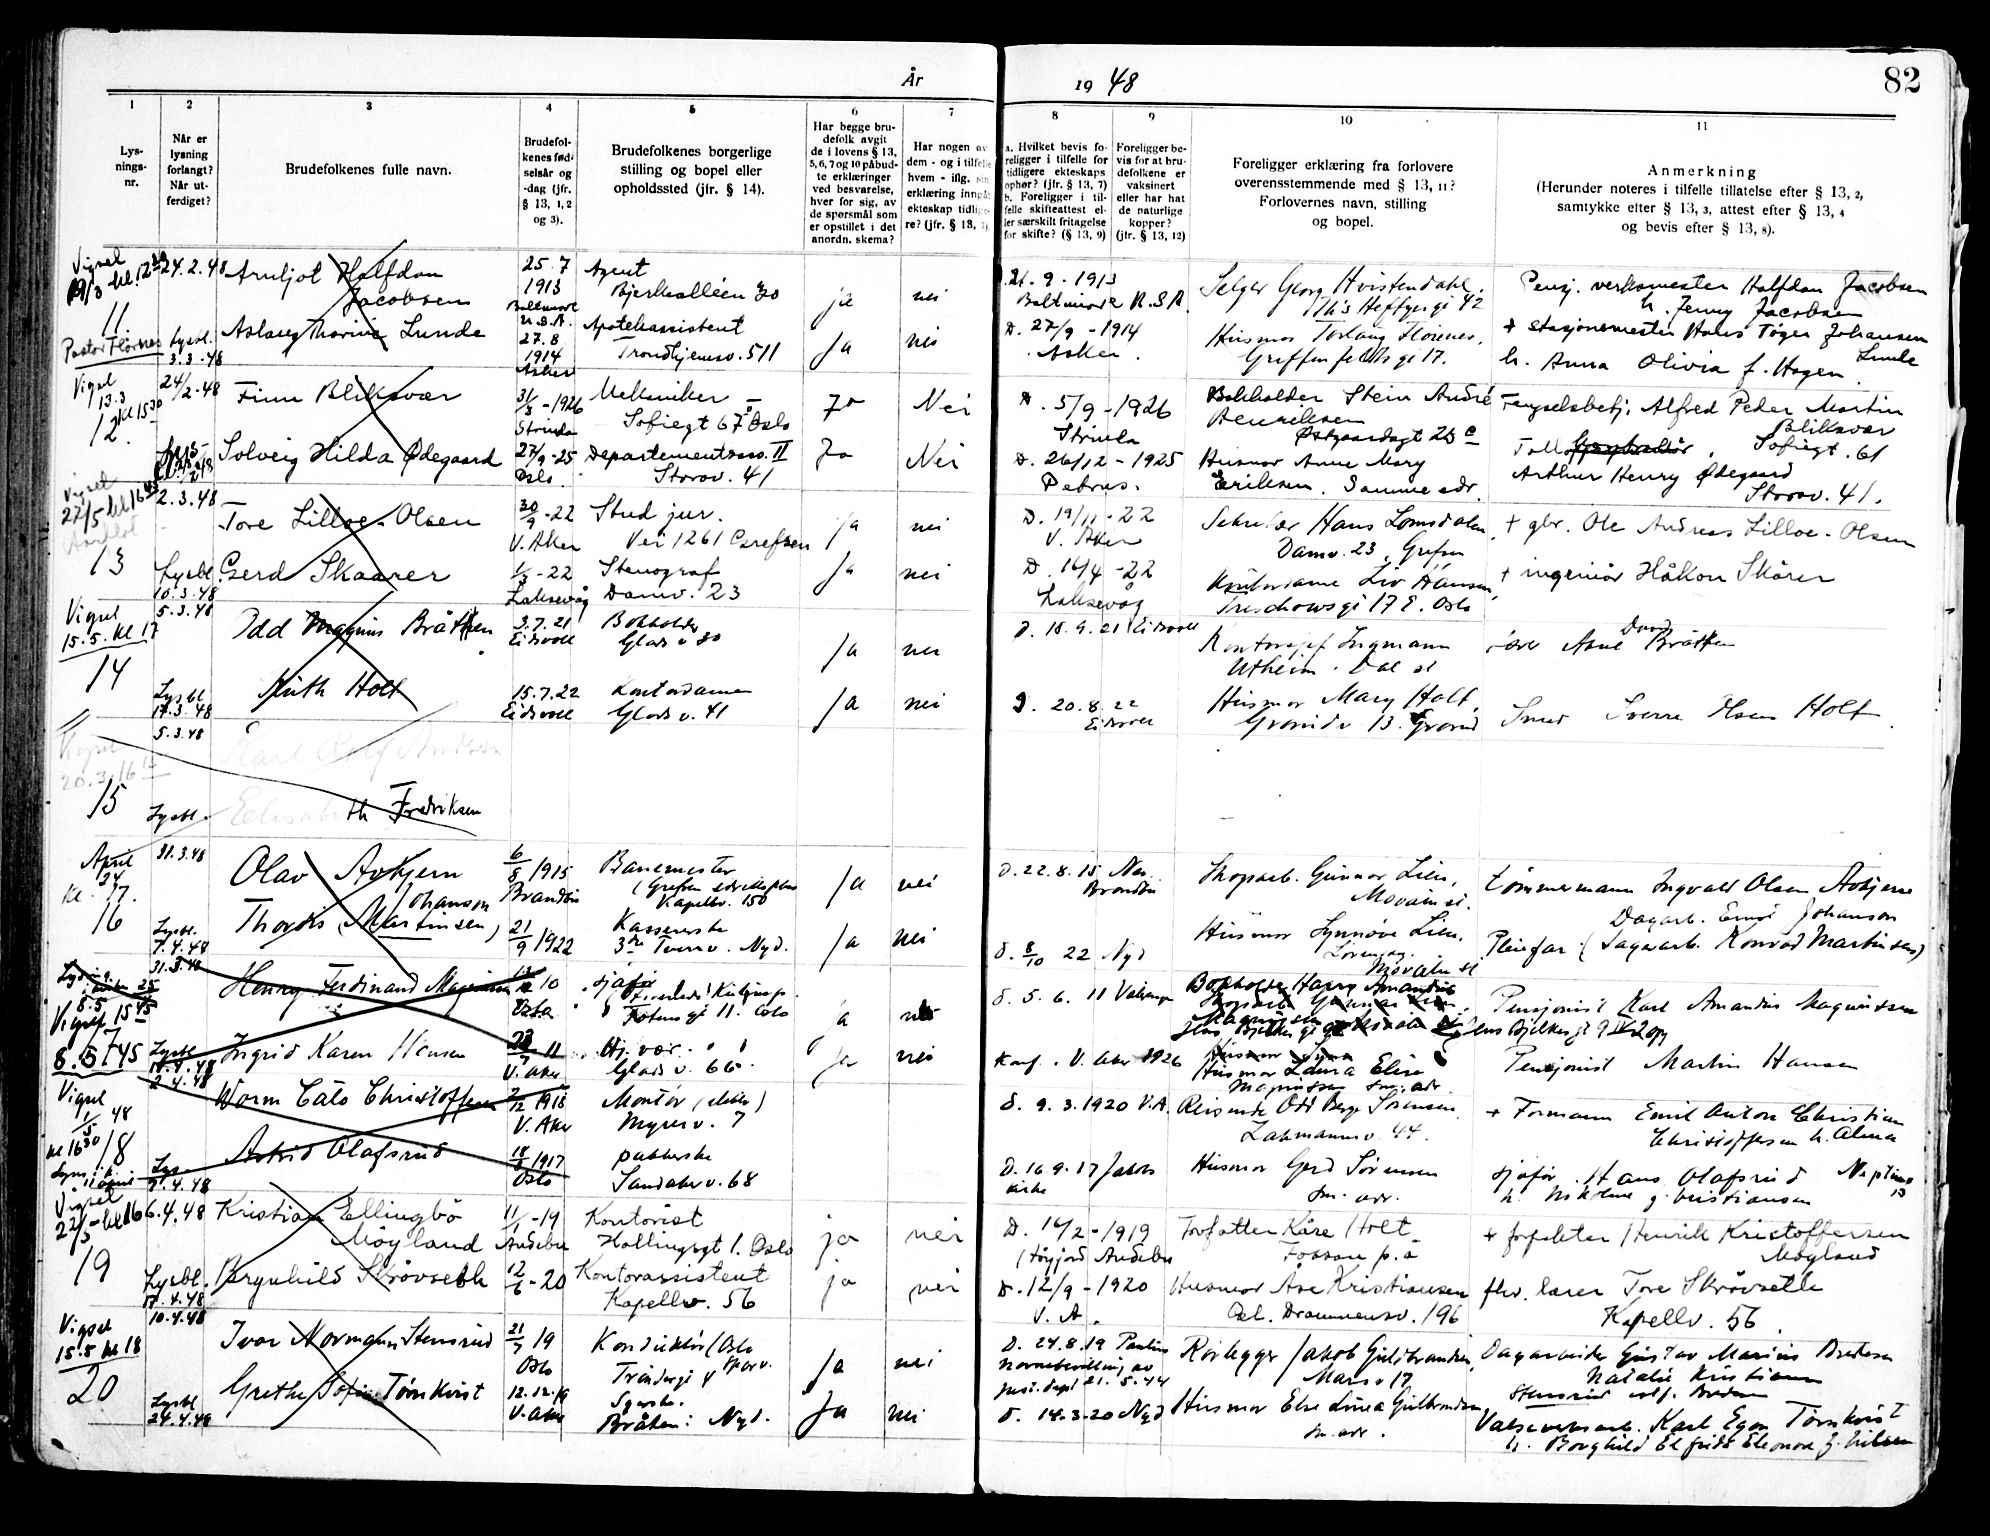 År 1948
82
1
2
3
4
5
6
7
8
9
10
11
Lys-
nings-
nr.
Når er
lysning
forlangt?
Når ut-
ferdiget?
Brudefolkenes fulle navn.
Brudefol-
kenes fød-
selsår og
-dag (jfr.
§ 13, 1, 2
og 3).
Brudefolkenes borgerlige
stilling og bopel eller
opholdssted (jfr. § 14).
Har begge bru-
defolk avgit
de i lovens § 13,
5, 6, 7 og 10 påbud-
te erklæringer
ved besvarelse,
hver for sig, av
de spørsmål som
er opstillet i det
anordn. skema?
Har nogen av
dem - og i tilfelle
hvem - iflg. sin
erklæring inngåt
ekteskap tidlige-
re? (jfr. § 13, 7)
a. Hvilket bevis fo-
religger i tilfelle for
tidligere ekteskaps
ophør? (jfr. § 13, 7)
b. Foreligger i til-
felle skifteattest el-
ler særskilt fritagelse
for skifte? (§ 13, 9)
Foreligger be-
vis for at bru-
defolkene er
vaksinert
eller har hat
de naturlige
kopper?
(jfr. § 13, 12)
Foreligger erklæring fra forlovere
overensstemmende med § 13, 11?
Forlovernes navn, stilling
og bopel.
Anmerkning
(Herunder noteres i tilfelle tillatelse efter § 13, 2,
samtykke efter § 13, 3, attest efter § 13, 4
og bevis efter § 13, 8).
Vigsel
24.2.48 Arnljot Halfdan
Jacobsen
25.7
1913
Baltimore
U.S.A.
Agent
Bjerkealléen 30
ja nei
21.9.1913
Baltimore
Selger Georg Hvistendahl.
Ths Heftyes gt 42
Pensj. verksmester Halfdan Jacobsen
h. Jenny Jacobsen
11
Pastor Flornes
Lysbl.
3.3.48
Aslaug Thorine Lunde
27.8
1914
Asker
Apotekassistent
Trondhjemsv. 511
Ja nei
D. 27/9 - 1914
Asker.
Husmor
Griffenfeldts gt 17.
+ stasjonsmester Hans Tøger Johansen
Lunde
h. Anna Olivia f. Hagen.
Vigsel
13.3
kl 15 30
12.
24/2-48 Finn Bliksvær
31/3 - 1926
Strinda
Mekaniker
Sofiegt 67 Oslo
Ja Nei
D. 5/9 - 1926
Strinda
Bokholder Stein André
Henriksen
Østgaardsgt 25 c
Fengselsbetj. Alfred Peder Martin
Bliksvær
Sofiegt. 61
Solveig Hilda Ødegaard
27/9-25
Oslo.
Departementsass. II
Storov. 41
Ja Nei
D. 26/12 - 1925
Petrus.
Husmor Anne Mary
Eriksen. Samme adr.
Arthur Henry Ødegaard
Storov. 41.
Vigsel
22/5 kl 16 45
2.3.48 Tore Lilloe-Olsen
30/9-22
V. Aker
Stud jur.
Vei 1261 Grefsen
Ja nei
D. 19/11-22
V. Aker
Sekretær Hans Lomsdalen,
Damv. 23, Grefsen
+ gbr. Ole Andreas Lilloe-Olsen
13
Lysbl.
10.3.48
Gerd Skaarer
-22
Laksevåg
Stenograf
Damv. 23
Ja nei
D. 16/4 -22
Laksevåg
Kontordame Liv Hansen,
Treschowsgt 17 E. Oslo
+ ingeniør Håkon Skårer
Vigsel
15.5. kl 17
14
5.3.48 Odd Magnus Bråthen
3.7.21
Eidsvoll
Bokholder
Glads v 30
Ja nei
D. 18.9.21 Eidsvoll
Kontorsjef Ingmann
Utheim. Dal st
Bråthen
Lysbl
17.3.48
Ruth Holt
15.7.22
Eidsvoll
Kontordame
Glads v. 41
Ja nei
D. 20.8.22
Eidsvoll
Husmor Mary Holt,
Grorudv 13. Grorud
Smed Sverre Olsen Holt
5.3.48
Vigsel
20.3. 16 15
Karl Rolf Andersen
15
Lysbl.
Elisabeth Fredriksen
April
24
kl. 17.
16
31.3.48
Olav Avhjern
6/8 1915
Brandbu
Banemester
Kapellv. 150
Ja nei
D. 22.8.15 Nes
Brandbu
Skogsarb. Gunnar Lien,
Movatn st.
tømmermann Ingvald Olsen Avhjern
Lysbl.
7.4.48
Johanson
Thordis (Martinsen)
21/9 1922
Kassererske
3dje Tverrv. Nyd.
Ja nei
D. 8/10 22 Nyd
Husmor Synnøve Lien.
Movatn st
Dagarb. Ernst Johanson
Pleiefar: (Sagarb. Konrad Martinsen)
31.3.48
Vigsel 15 45
8.5. 17 45
Henry Ferdinand Magnussen
10
Oslo
sjåfør
Fotens gt 11. Oslo
nei
D. 5.6.11 Vålerenga
Bokholder Harry Amandus
Magnussen
Jens Bjelkes gt 9
Pensjonist Karl Amandus Magnussen
Jens Bjelkes gt 9 IV opg
Ingrid Karen Hansen
11
V. Aker
Hj. vær.
Glads v. 66.
ja nei
Konf. V. Aker 1926
Husmor Laura Elise
Magnussen sm. adr
Pensjonist Martin Hansen
Vigsel
1/5 48
kl 16 30
18
2.4.48
Worm Cato Christoffersen
2/12 1918
V. Aker
Montør (elektr)
Myrerv. 7
D. 9.3.1920 V.A.
Reisende Odd Berge Sørensen
Lakmannsv. 44.
+ Formann Emil Anton Christian
Christoffersen h. Alma
Lys.
9.4.48
Astrid Olafsrud
18/8 1917
Oslo
pakkerske
Sandakerv. 68
D. 16.9.17 Jakobs
kirke
Husmor Gerd Sørensen
sm. adr.
sjåfør Hans Olafsrud
Vigsel
22/5 - kl 16
19
6.4.48 Kristian Ellingbø
Møyland
11/1 -19
Andebu
Kontorist
Hallingsgt 1. Oslo
ja nei
D. 16/2-1919
(Høyjord Andebu
Forfatter Kåre Holt
Fossan p.å
+ forpakter Henrik Kristoffersen
Møyland
Lysbl.
17.4.48
Bergnhild Skrøvseth
12/6 -20
Kontorassistent
Kapellv. 56
ja nei
D. 12/9 - 1920
V. A.
Husmor Åse Kristiansen
Drammensv. 196
fhv. lærer Tore Skrøvseth
Kapellv. 56.
Vigsel
15.5 kl 18
20
10.4.48
Ivar Normann Stensrud
21/7 19
Oslo
Konduktør (Oslo
Sporv.
Trondergt 4
Ja nei
D. 24.8.19 Paulus
Navnebevilling av
just. dept 21.5.44
Rørlegger Jakob Guldbrandsen,
Marsv 17
Dagarbeider Gustav Marius Bredesen
Natalie Kristiane
Stensrud
Lysbl
24.4.48
Grethe Sofie Tørnkvist
12.12.19
V. Aker
Syerske.
Bråten: Nyd.
Ja nei
D. 14-3-20 Nyd
Husmor Else Lovisa Gulbrandsen,
sm. adr.
Valseverksarb. Karl Egon Tørnkvist
h. Borghild Elfrida Eleonora f. Nilsen